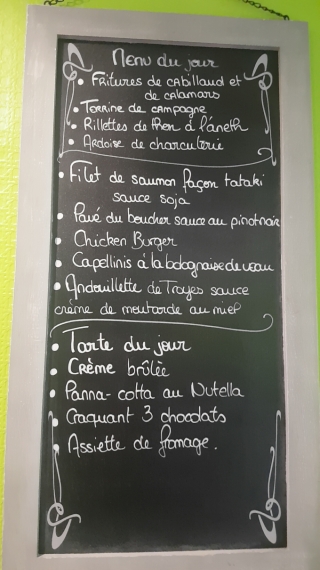 Menu du jour
• Fritures de cabillaud et
de calamars
• Terrine de campagne
• Rillettes de thon à l'aneth
• Ardoise de charcuterie
• Filet de saumon façon tataki
sauce soja
• Pavé du boucher sauce au pinot noir
• Chicken Burger
• Capellinis à la bolognaise de veau
• Andouillette de Troyes sauce
crème de moutarde au miel
• Tarte du jour
• Crème brûlée
• Panna-cotta au Nutella
• Craquant 3 chocolats
• Assiette de fromage.